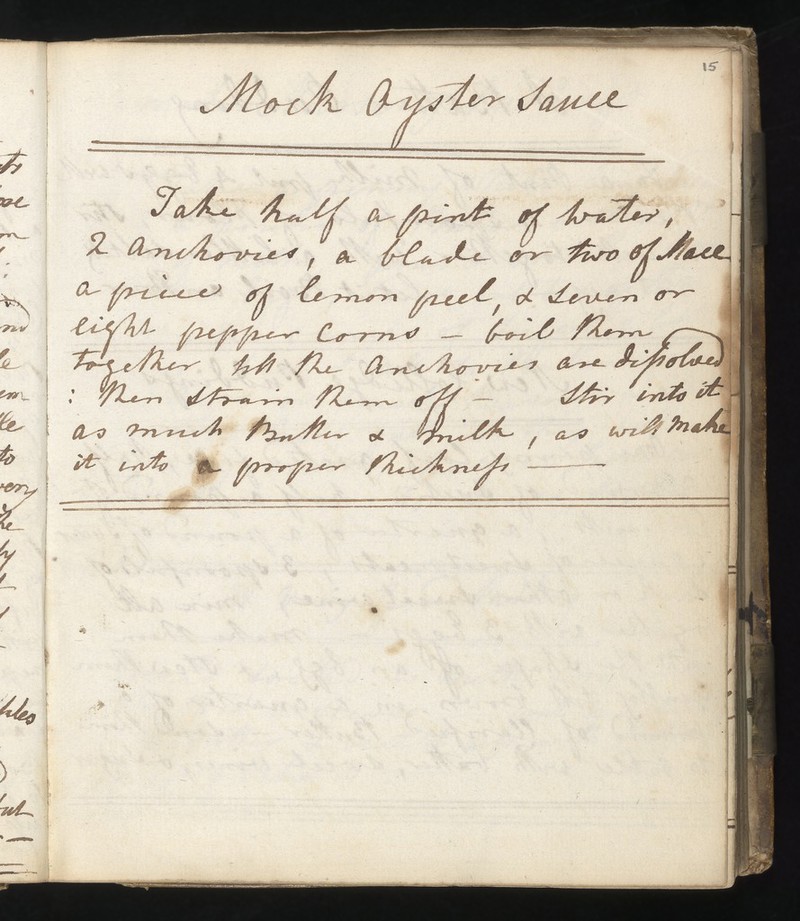 15
Mock Oyster Sauce
Take half a pint of water,
2 Anchovies, a blade or two of Mace
a piece of lemon peel, & Seven or
eight pepper Corns – boil them
together till the Anchovies are dissolved
: then Strain them off – Stir into it
as much Butter & milk, as will make
it into a proper thickness —